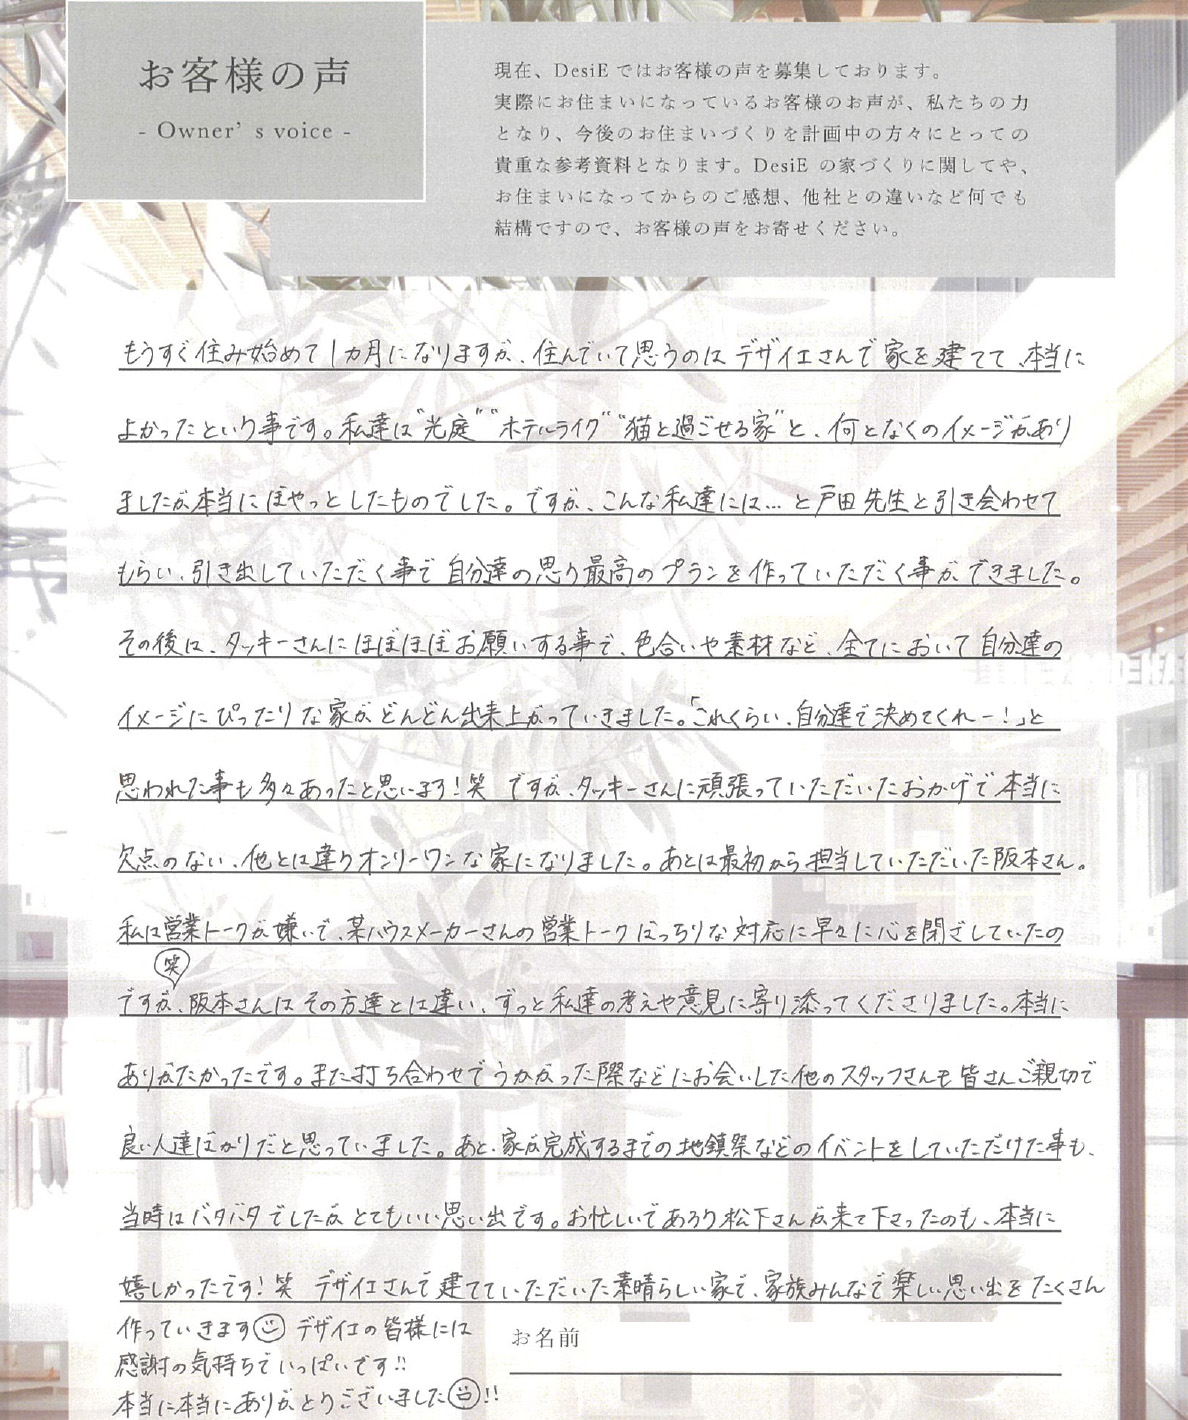 お客様の声
- Owner’s voice -
現在、DesiE ではお客様の声を募集しております。
実際にお住まいになっているお客様のお声が、私たちの力
となり、今後のお住まいづくりを計画中の方々にとっての
貴重な参考資料となります。DesiE の家づくりに関してや、
お住まいになってからのご感想、他社との違いなど何でも
結構ですので、お客様の声をお寄せください。
もうすぐ住み始めて1カ月になりますが、住んでいて思うのはデザイエさんで家を建てて、本当に
よかったという事です。私達は"光庭""ホテルライク""猫と過ごせる家"と、何となくのイメージがあり
ましたが本当にぼやっとしたものでした。ですが、こんな私達には…と戸田先生と引き会わせて
もらい、引き出していただく事で自分達の思う最高のプランを作っていただく事ができました。
その後は、タッキーさんにほぼほぼお願いする事で、色合いや素材など、全てにおいて自分達の
イメージにぴったりな家がどんどん出来上がっていきました。「これくらい、自分達で決めてくれー!」と
思われた事も多々あったと思います!笑 ですが、タッキーさんに頑張っていただいたおかげで本当に
欠点のない、他とは違うオンリーワンな家になりました。あとは最初から担当していただいた阪本さん。
私は営業トークが嫌いで、某ハウスメーカーさんの営業トークばっちりな対応に早々に心を閉ざしていたの
ですが(笑)、阪本さんはその方達とは違い、ずっと私達の考えや意見に寄り添ってくださりました。本当に
ありがたかったです。また打ち合わせでうかがった際などにお会いした他のスタッフさんも皆さんご親切で
良い人達ばかりだと思っていました。あと、家が完成するまでの地鎮祭などのイベントをしていただけた事も、
当時はバタバタでしたがとてもいい思い出です。お忙しいであろう松下さんが来て下さったのも、本当に
嬉しかったです!笑 デザイエさんで建てていただいた素晴らしい家で、家族みんなで楽しい思い出をたくさん
作っていきます☺ デザイエの皆様には
感謝の気持ちでいっぱいです!!
本当に本当にありがとうございました☺!!
お名前